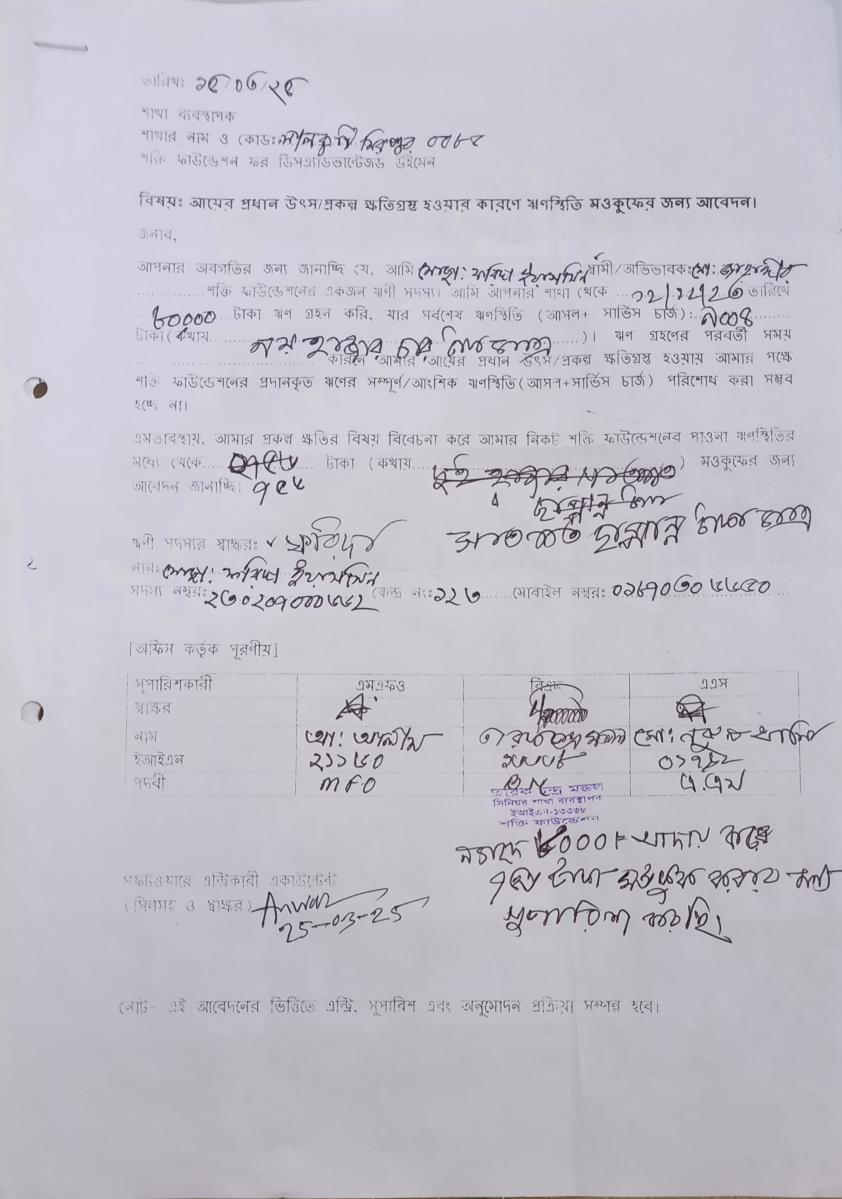 তারিখ: ২৫/০৩/২৫
শাখা ব্যবস্থাপক
শাখার নাম ও কোড: লালকুঠি মিরপুর
শক্তি ফাউন্ডেশন ফর ডিসএ্যাডভান্টেজড উইমেন
বিষয়ঃ আয়ের প্রধান উৎস/প্রকল্প ক্ষতিগ্রস্থ হওয়ার কারণে ঋণস্থিতি মওকুফের জন্য আবেদন।
জনাব,
আপনার অবগতির জন্য জানাচ্ছি যে, আমি মোছা: ফরিদা ইয়াসমিন স্বামী/অভিভাবক: মো: জাহাঙ্গীর
শক্তি ফাউন্ডেশনের একজন ঋণী সদস্য। আমি আপনার শাখা থেকে ... ১২/১২/২৩ তারিখে
৮০০০০ টাকা ঋণ গ্রহন করি, যার সর্বশেষ ঋণস্থিতি (আসল+ সার্ভিস চার্জ): ৯০০৪
টাকা(কথায় নয় হাজার চার টাকা মাত্র)। ঋণ গ্রহণের পরবর্তী সময়
কারণে আমার আয়ের প্রধান উৎস/প্রকল্প ক্ষতিগ্রস্থ হওয়ায় আমার পক্ষে
শক্তি ফাউন্ডেশনের প্রদানকৃত ঋণের সম্পূর্ণ/আংশিক ঋণস্থিতি(আসল+সার্ভিস চার্জ) পরিশোধ করা সম্ভব
হচ্ছে না।
এমতাবস্থায়, আমার প্রকল্প ক্ষতির বিষয় বিবেচনা করে আমার নিকট শক্তি ফাউন্ডেশনের পাওনা ঋণস্থিতির
মধ্যে থেকে... টাকা (কথায় ...) মওকুফের জন্য
আবেদন জানাচ্ছি।
সাতশত ছাপ্পান্ন টাকা মাত্র
ঋণী সদস্যর স্বাক্ষর: ফরিদা
নাম: মোছা: ফরিদা ইয়াসমিন
সদস্য নম্বর: কেন্দ্র নং: ১২৩ মোবাইল নম্বর:
[অফিস কর্তৃক পূরণীয়]
সুপারিশকারী এমএফও এএস
স্বাক্ষর
নাম
ইআইএন ২১১৫০
পদবী MFO এ.এস
সিনিয়র শাখা ব্যবস্থাপক
ইআইএন-১৩৩৩৮
শক্তি ফাউন্ডেশন
নগদে আদায় করে
টাকা মওকুফ করার জন্য
সুপারিশ করছি।
সফটওয়ারে এন্ট্রিকারী একাউন্টেন্ট
(সিলসহ ও স্বাক্ষর) Anwar
25-03-25
নোট- এই আবেদনের ভিত্তিতে এন্ট্রি, সুপারিশ এবং অনুমোদন প্রক্রিয়া সম্পন্ন হবে।